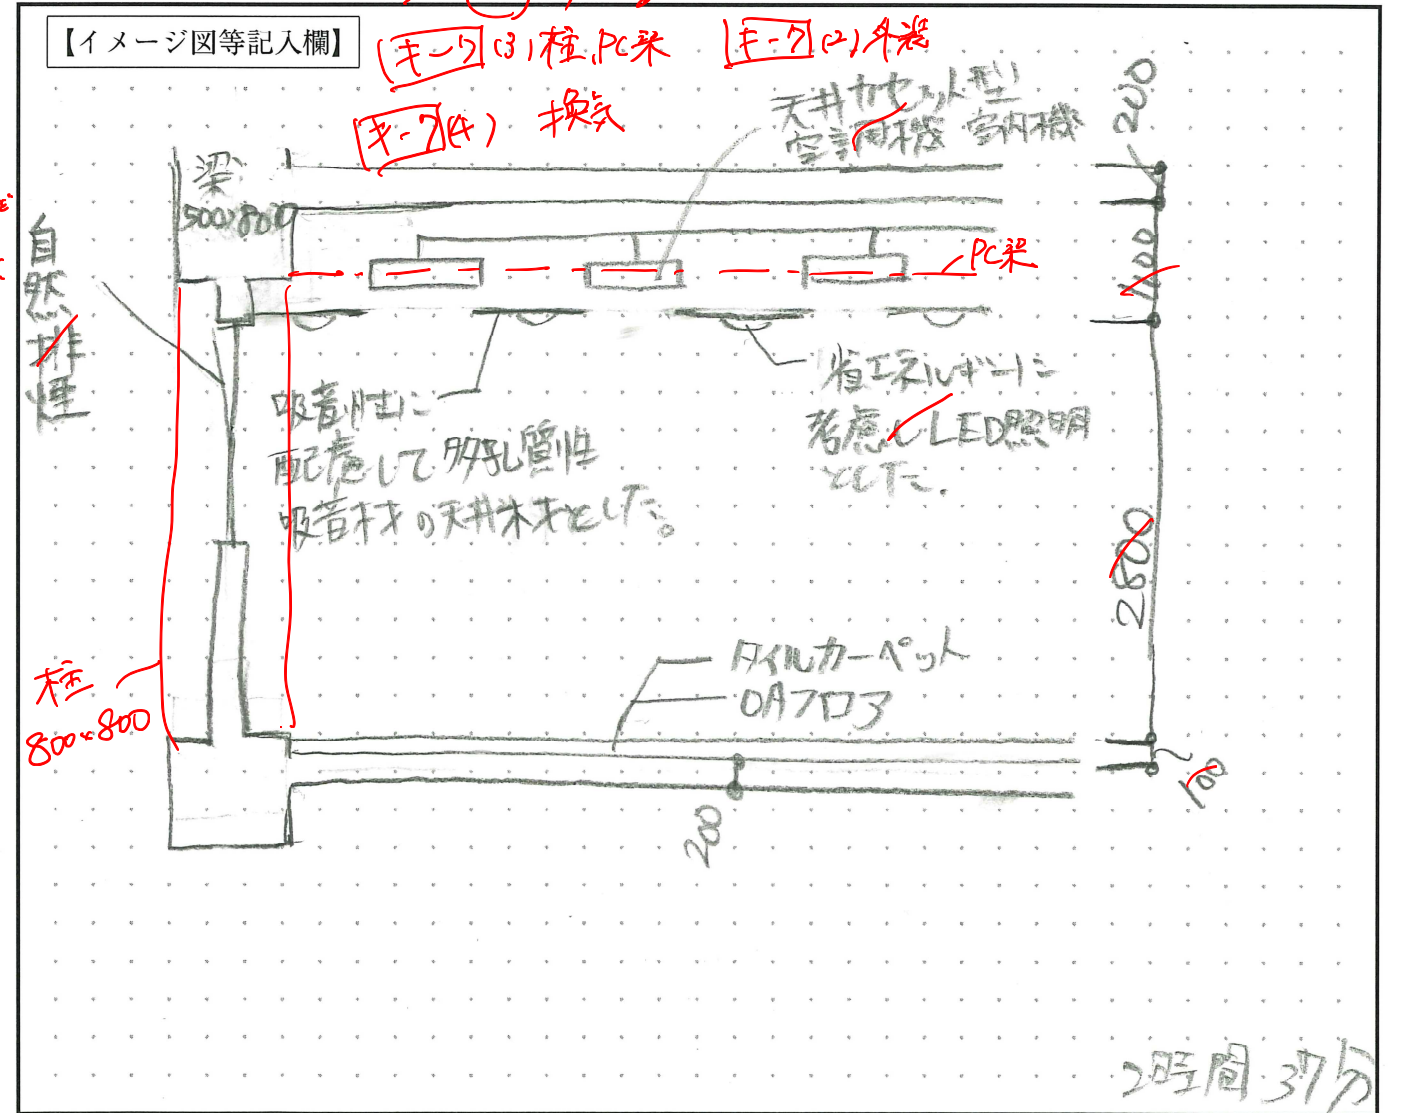 【イメージ図等記入欄】
キーワ(3)柱、PC梁
キーワ(2)外装
キーワ(4) 換気
天井カセット型
空調機 室内機
200
梁
500×800
自然排煙
PC梁
1100
吸音性に
配慮して多孔質性
吸音材の天井米才とした。
省エネルギーに
考慮しLED照明
とした.
2800
柱
800×800
タイルカーペット
OAフロア
100
200
2時間37分